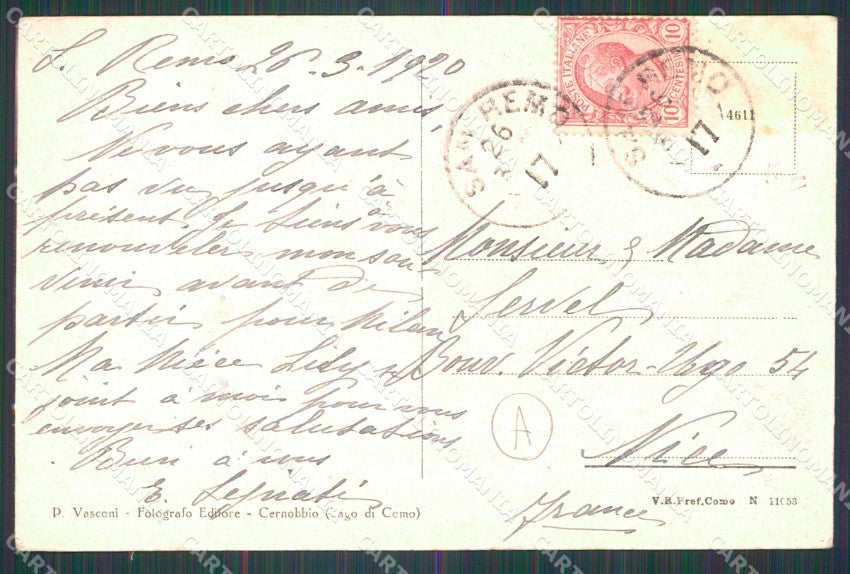 S. Remo 26-3-1920
Biens chers amis,
Ne vous ayant
pas vu jusqu'à
présent, je tiens à vous
renouveler mon sou-
venir avant de
partir pour Milan
Ma Nièce Lily se
joint à moi pour vous
envoyer ses salutations
Bien à vous
E.
P. Vasconi - Fotografo Editore - Cernobbio (Lago di Como)
POSTE ITALIANE
CENTESIMI 10
10
SAN REMO
26
17
SAN REMO
17
4611
Monsieur & Madame
Servel
Bouv. Victor-Ugo 54
Nice
France
A
V.R.Pref.Como N 11053
CARTOLINOMANIA